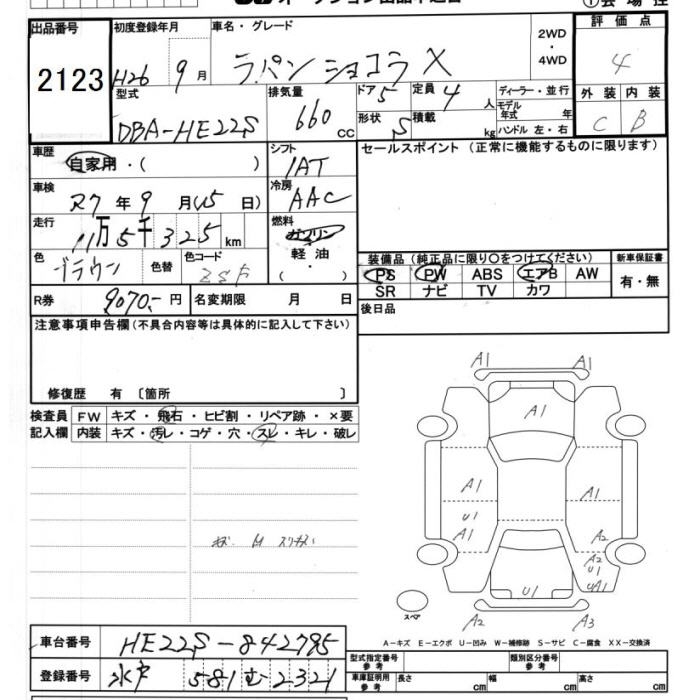 出品番号
2123
初度登録年月
H26 9月
車名・グレード
ラパン ショコラ X
2WD
・
4WD
評価点
4
型式
DBA-HE22S
排気量
660 cc
ドア 5
定員 4 人
形状 S
積載 kg
ディーラー・並行
モデル年式 年
ハンドル 左・右
外装 内装
C B
車歴
自家用・( )
シフト
IAT
セールスポイント (正常に機能するものに限ります)
車検
R7年9月(15日)
冷房
AAC
走行
11万5千325km
燃料
ガソリン
軽油
・
( )
色
ブラウン
色替
色コード
ZSF
装備品 (純正品に限り○をつけてください)
新車保証書
PS PW ABS エアB AW
有・無
SR ナビ TV カワ
R券 9070.-円
名変期限 月 日
後日品
注意事項申告欄(不具合内容等は具体的に記入して下さい)
修復歴 有 〔箇所 〕
検査員 FW キズ・飛石・ヒビ割・リペア跡・×要
記入欄 内装 キズ・汚レ・コゲ・穴・スレ・キレ・破レ
A1 A1
A1
A1 A1
U1
A1 A2
A2
U1
U1 UA1
スペア
A2 A3
A-キズ E-エクボ U-凹み W-補修跡 S-サビ C-腐食 XX-交換済
車台番号 HE22S-842795
登録番号 水戸 581 む 2321
型式指定番号 参考
類別区分番号 参考
車庫証明用 参考
長さ cm 幅 cm 高さ cm